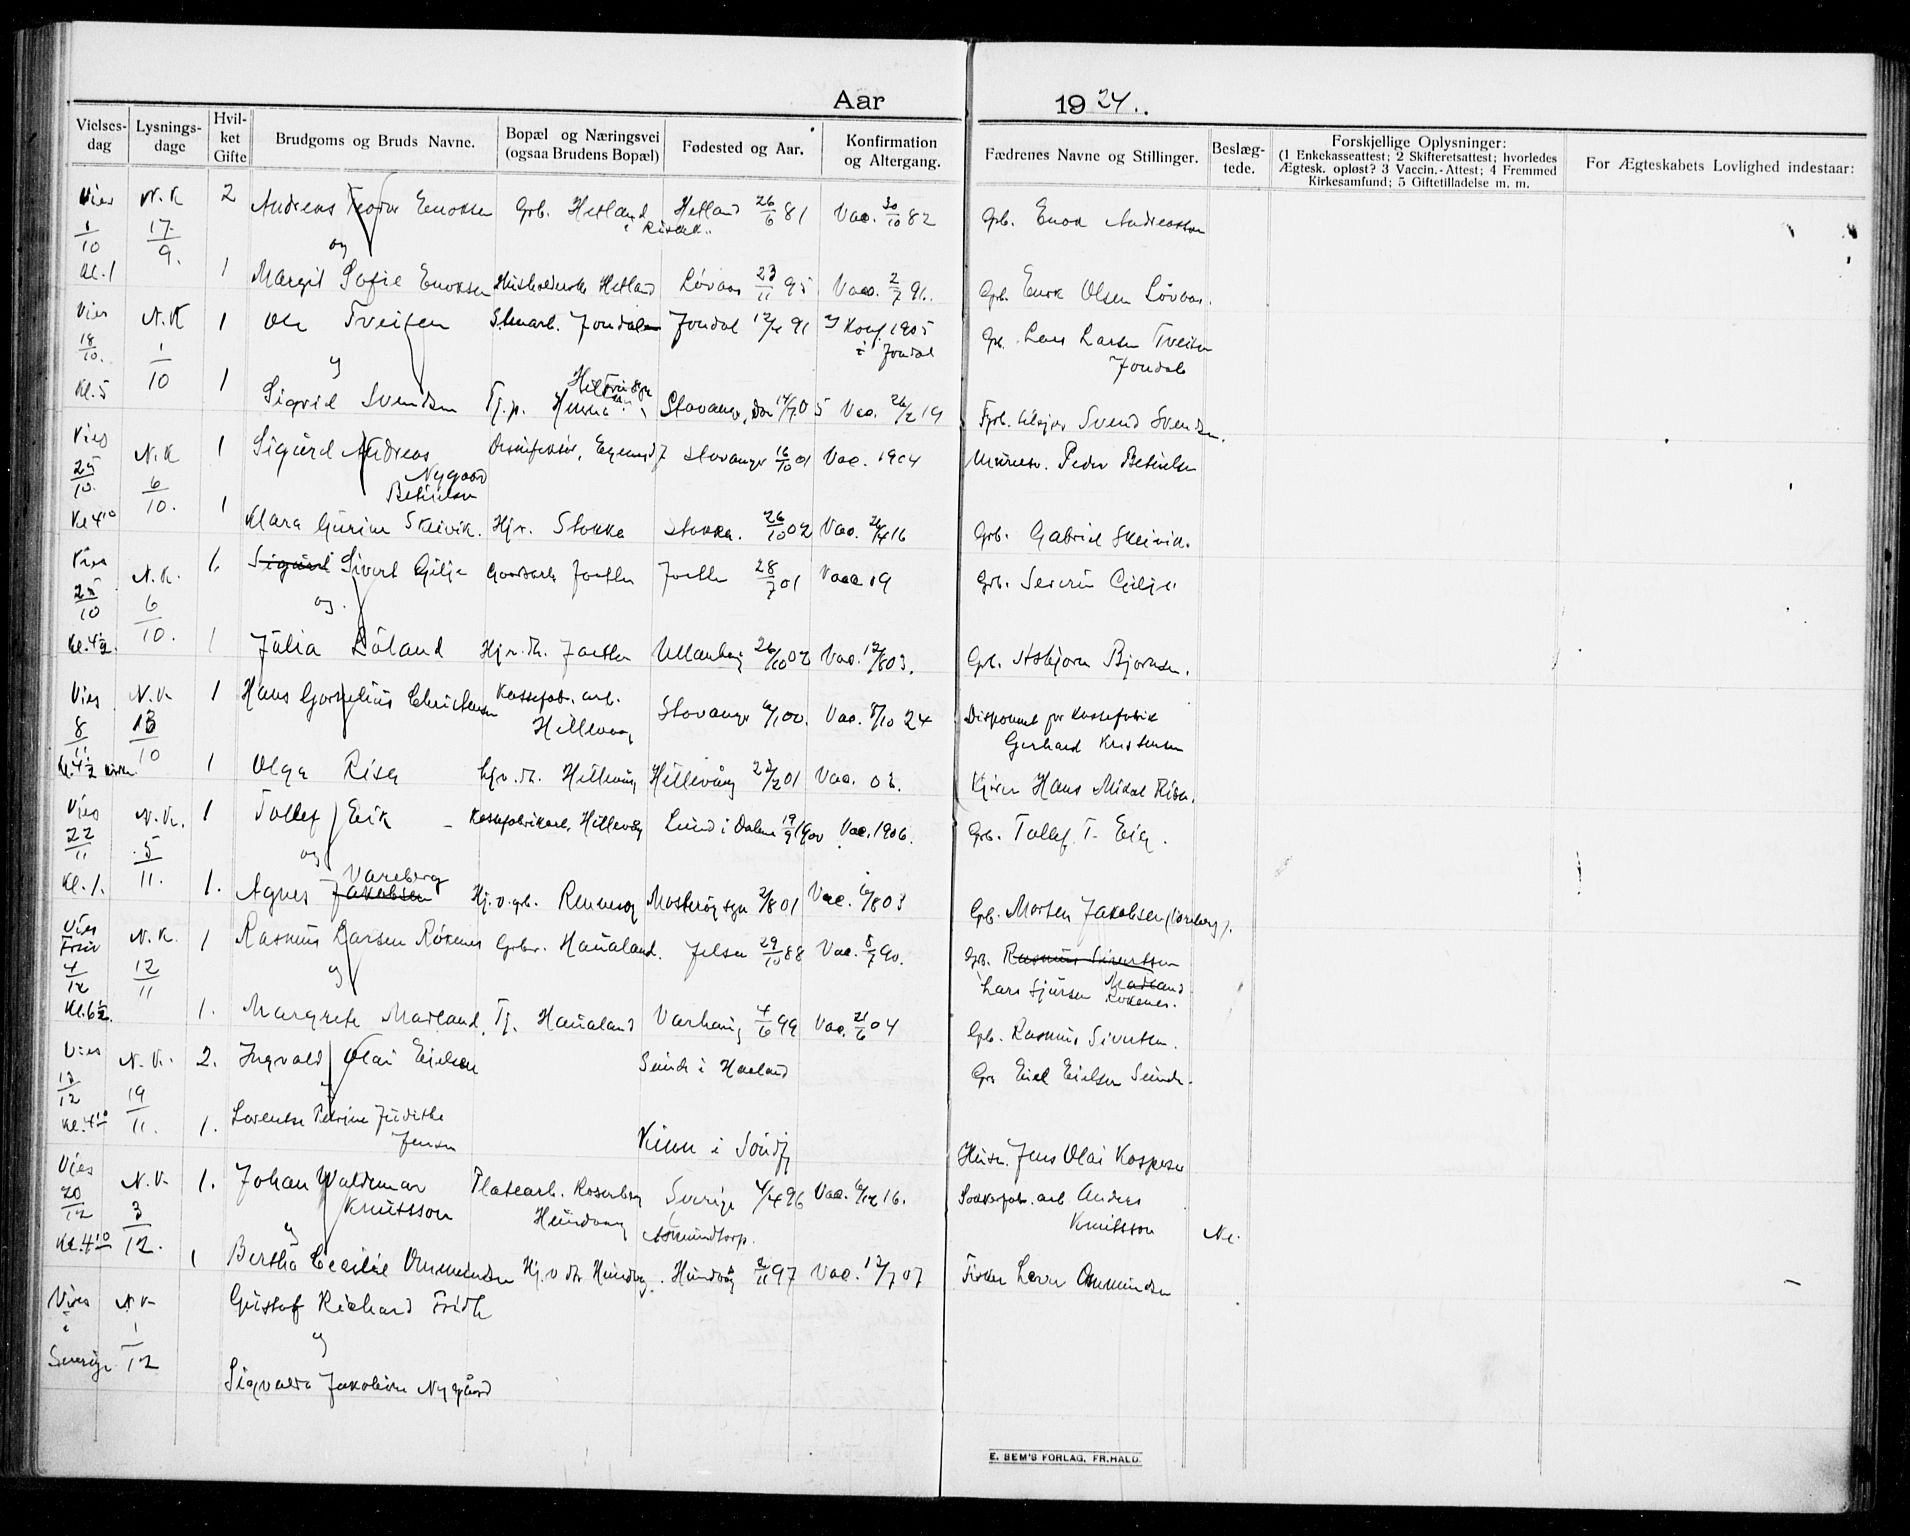 Aar 1924.
Vielses-dag | Lysnings-dage | Hvil-ket Gifte | Brudgoms og Bruds Navne. | Bopæl og Næringsvei (ogsaa Brudens Bopæl) | Fødested og Aar. | Konfirmation og Altergang. | Fædrenes Navne og Stillinger. | Beslæg-tede. | Forskjellige Oplysninger: (1 Enkekasseattest; 2 Skifteretsattest; hvorledes Ægtesk. opløst? 3 Vaccin.-Attest; 4 Fremmed Kirkesamfund; 5 Giftetilladelse m. m. | For Ægteskabets Lovlighed indestaar:
Vies 1/10 Kl. 1 | N. K 17/9. | 2 | Andreas Enoksen | Grb. Hetland | Hetland 26/6 81 | Vac. 30/10 82 | Grb. Enok Andreassen
og
1 | Margit Sofie Enoksen | Hetland | Løvaas 23/11 95 | Vacc. 2/7 96. | Grb. Enok Olsen Løvaas.
Vies 18/10. Kl. 5 | N. K 1/10 | 1 | Ole Tveiten | Jondalen | Jondal 91 | Konf. 1905 i Jondal | Lars Larsen Tveiten Jondalen
og
1 | Sigrid Svendsen | Tj. p. | Stavanger | Vac. 19 | Svend Svendsen.
Vies 25/10. Kl 4 10 | N. K 6/10. | 1 | Sigurd Andreas Nygaard Betuelsen | Egersund | Stavanger 16/10 01 | Vac. 1904 | Peder Betuelsen
1 | Klara Gurine Skeivik. | Hj. v. Stokka | Stokka. 26/10 02 | Vac. 16 | Grb. Gabriel Skeivik.
Vies 25/10 Kl. 4 1/2. | N. K. 6/10. | 1. | Sigurd Sivert Gilje | Jaatten | Jaatten 28/7 01 | Vacc. 19 | Grb. Severin Gilje
og.
1 | Julia Løland | Hj. v. m. Jaatten | 26/10 02 | Vac. 12/8 03. | Grb. Asbjørn Bjørnsen.
Vies 8/11. Kl. 4 1/2 kirken | N. K 13/10 | 1 | Hans Cornelius Christensen | Kassefab. arb. Hillevaag | Stavanger | Vac. 24 | Disponent for Kassefabrik Gerhard Kristensen
1 | Olga Risa | hj. v. m. Hillevåg | Hillevåg 01 | Vac. 03. | Hans Mikal Risa.
Vies 22/11 Kl. 1. | N. K. 5/11. | 1 | Tollef Eik | Kassefabrikarb. Hillevåg | Lund i Dalene 19/9 1900 | Vac. 1906. | Grb. Tollef T. Eik.
og
1. | Agnes Jakobsen Vareberg | Hj. v. grb. Rennesøy | Mosterøy sgn 01 | Vac. 03 | Grb. Morten Jakobsen (Vareberg).
Vies Frue 4/12 Kl. 6 1/2. | N. K. 12/11 | 1 | Rasmus Larsen Røkenes | Grbr. Haualand. | Jelsa 29/10 88 | Vac. 8/7 90. | Grb. Rasmus Sivertsen Madland Lars Sjursen Røkenes.
og
1. | Margrete Madland, | Tj. Haualand | Varhaug 4/6 99 | Vac. 21/6 04 | Grb. Rasmus Sivertsen.
Vies 13/12 Kl. 4 10 | N. K. 19/11. | 2. | Ingvald Olai Eielsen | Sunde i Haaland | Gr Eiel Eielsen Sunde.
1. | Lorentse Petrine Judithe Jensen | Kinn i Søndfj | Husm. Jens Olai Kaspersen
Vies 20/12 Kl. 4 10 | N. K. 3/12. | 1. | Johan Waldemar Knutsson | Hundvaag | Sverige 4/4 96 Asmundtorp. | Vac. 16. | Sukkerfab. arb Anders Knutsson | Nei
og
1 | Bertha Cecilie Ommundsen | Hj. v m. Hundvåg. | Hundvåg 97 | Vac. 12/7 07 | Fisker Ommundsen | –
Vies i Sverige | N. K 1/12 | Gustaf Richard Fridh
og
Sigvalda Jakobine Nygård
E. SEM'S FORLAG, FR.HALD.